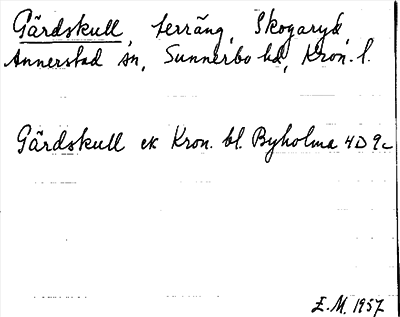 Gärdskull, terräng, Skogaryd,
Annerstad sn, Sunnerbo hd, Kron. l.
Gärdskull ek Kron. bl. Byholma 4D 9c
E.M. 1957